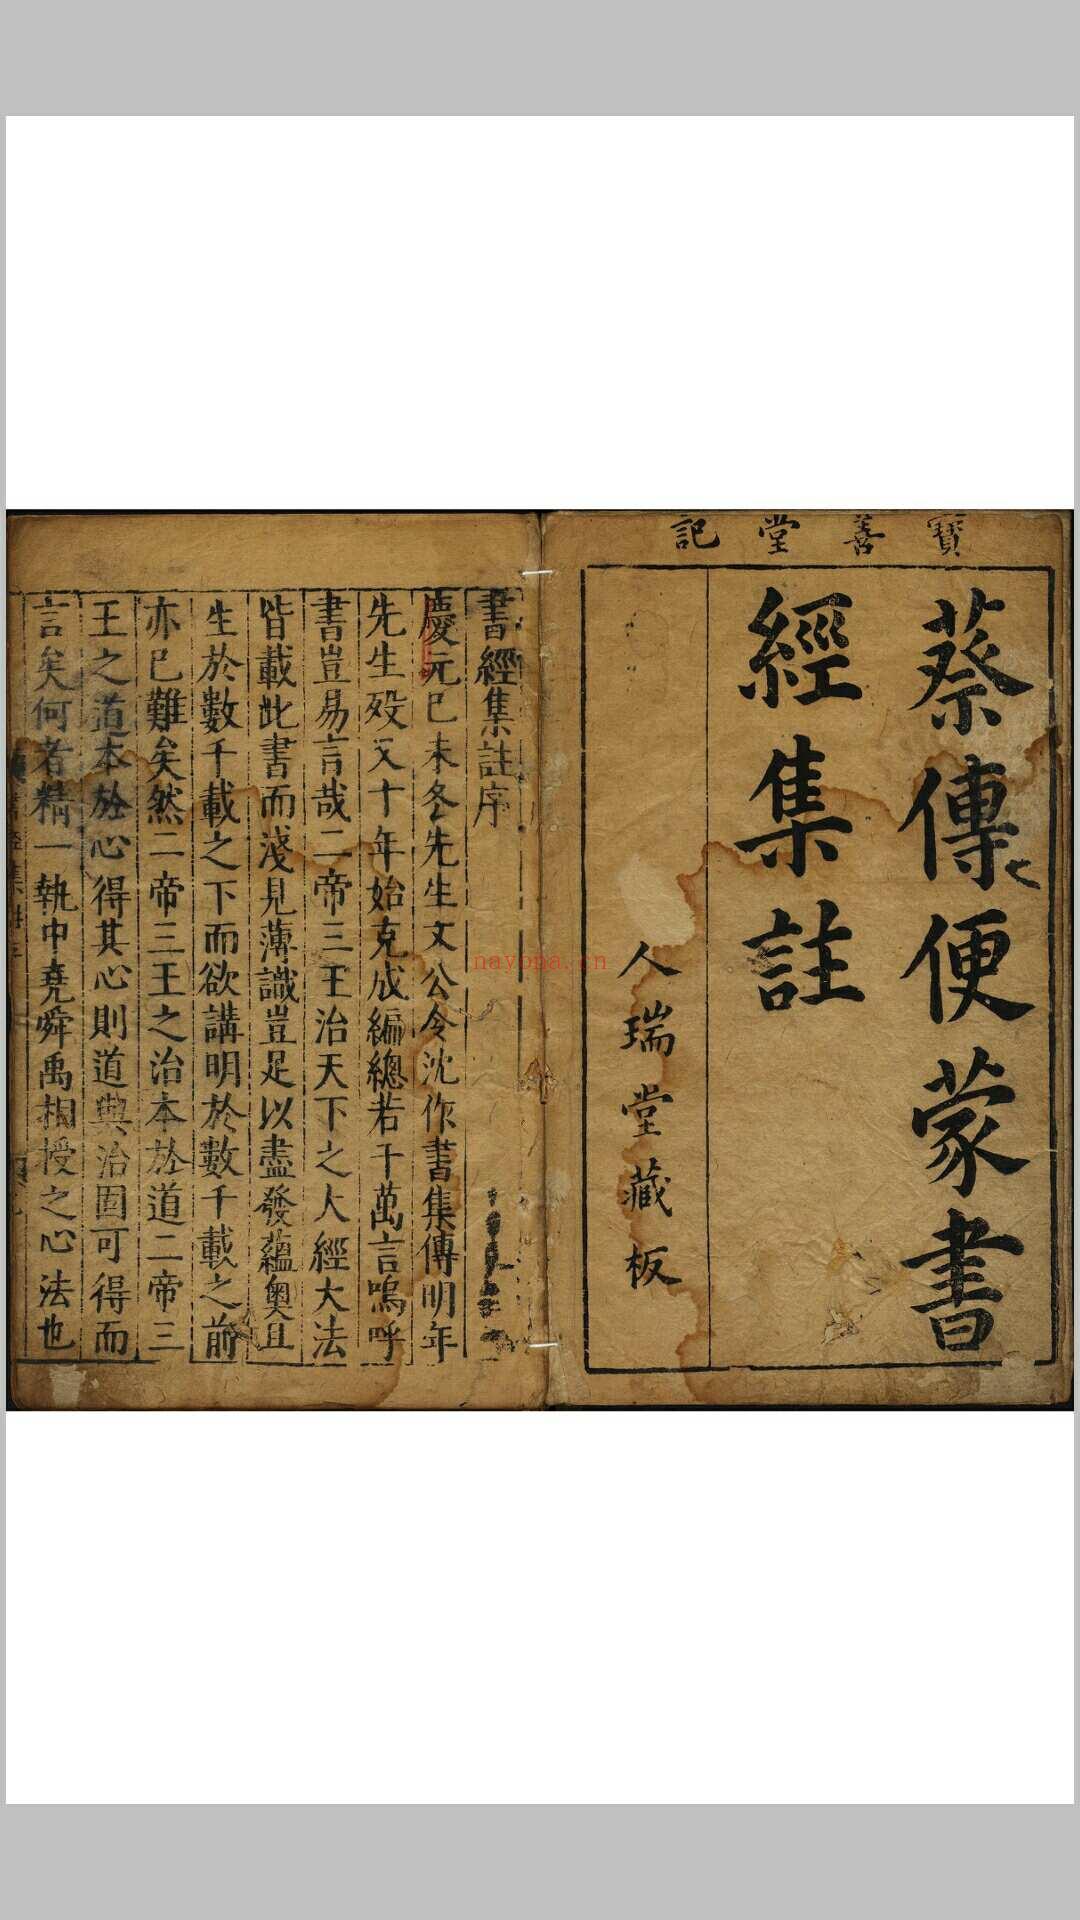 寶善堂記
蔡傳便蒙書
經集註
人瑞堂藏板
書經集註序
慶元己未冬先生文公令沈作書集傳明年
先生歿又十年始克成編總若干萬言嗚呼
書豈易言哉二帝三王治天下之大經大法
皆載此書而淺見薄識豈足以盡發蘊奧且
生於數千載之下而欲講明於數千載之前
亦已難矣然二帝三王之治本於道二帝三
王之道本於心得其心則道與治固可得而
言矣何者精一執中堯舜禹相授之心法也
nayona.cn